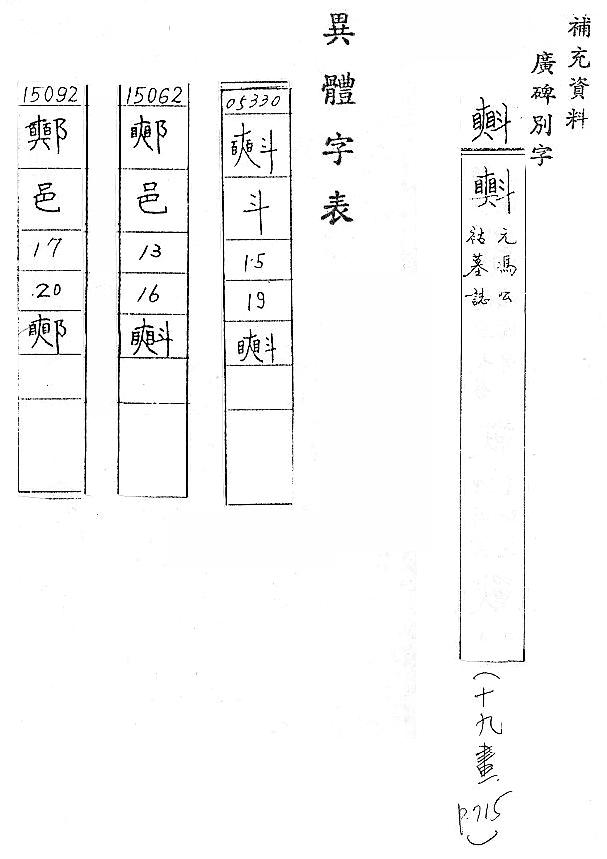 補充資料
廣碑別字
㪺
元馮公
祜墓誌
(十九畫
p.715)
異體字表
05330
㪺
斗
15
19
㪺
15062
邑
13
16
㪺
15092
邑
17
20